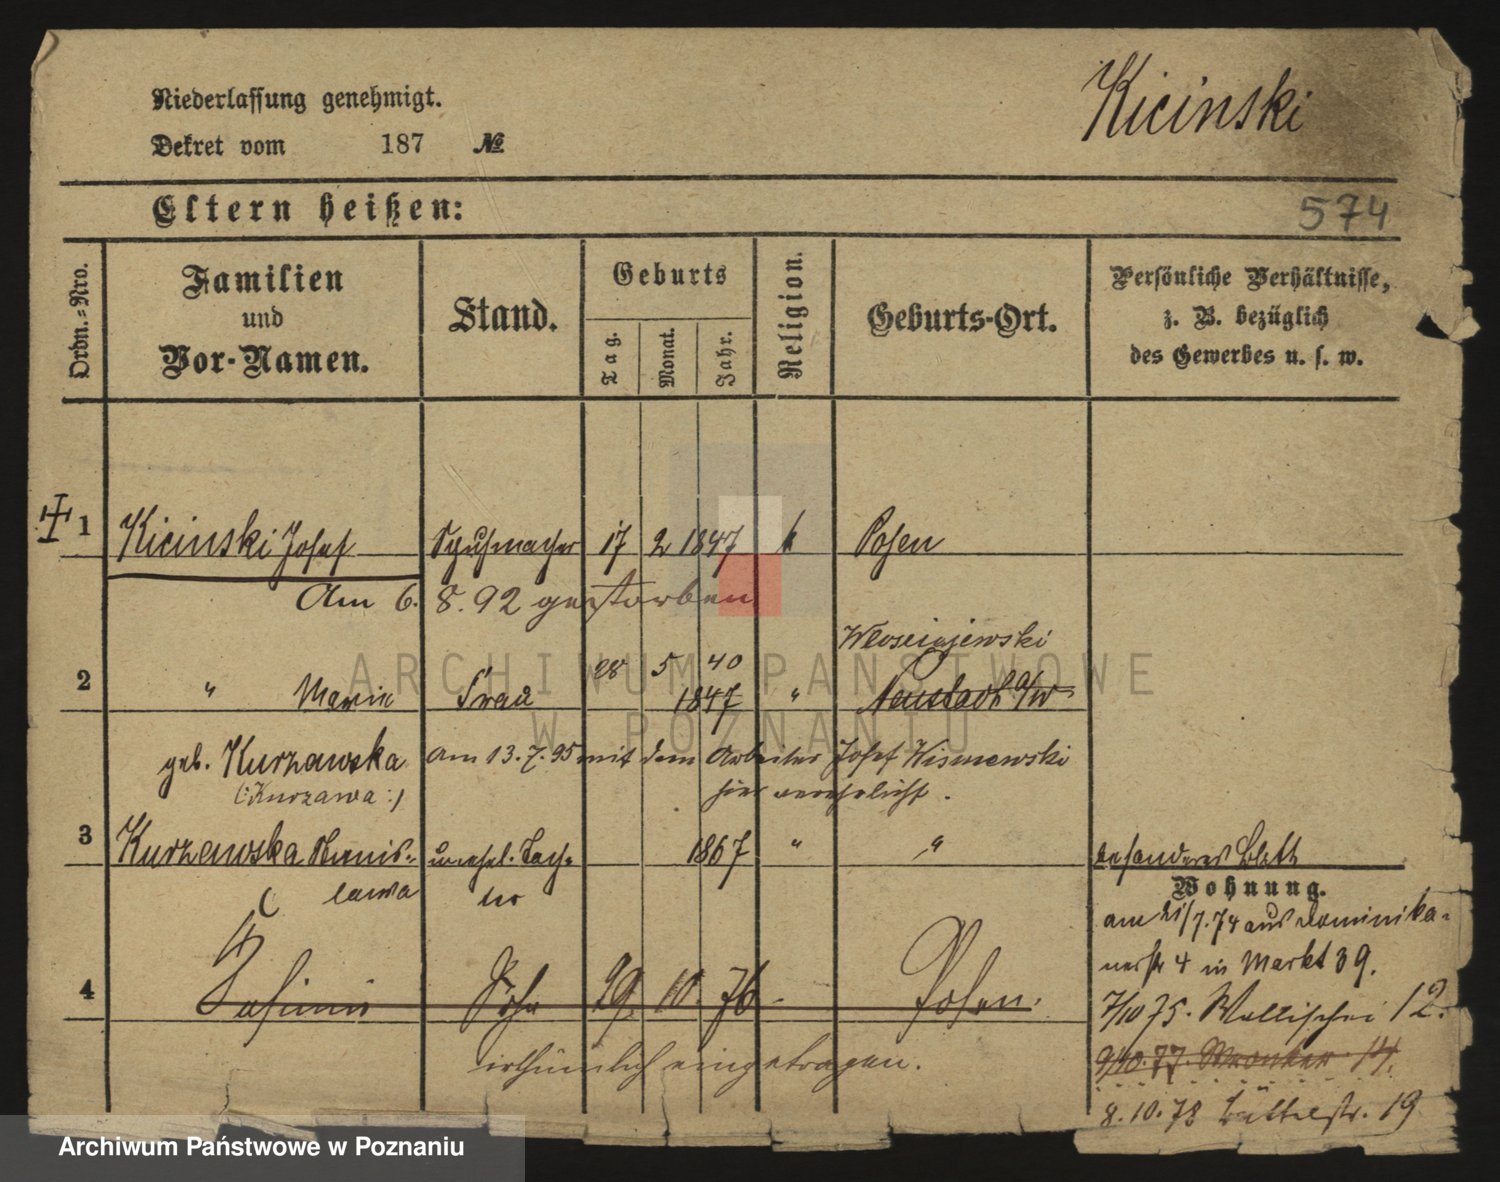 Niederlassung genehmigt.
Kicinski
Dekret vom 187 №
Eltern heißen:
574
Ordn.-Nro.
Familien und Vor-Namen.
Stand.
Geburts
Tag.
Monat.
Jahr.
Religion.
Geburts-Ort.
Persönliche Verhältnisse,
z. B. bezüglich
des Gewerbes u. s. w.
1 Kicinski Josef Schuhmacher 17 2 1847 k Posen
Am 6. 8. 92 gestorben
Włosciejewski
28 5 40
2 " Marie Frau 1847 " Neustadt a/W
geb. Kurzawska am 13.7.95 mit dem Arbeiter Josef Wisniewski
(:Kurzawa:) hier verehelicht.
3 Kurzawska Stanis- unehel. Toch- 1867 " " besonderes Blatt
lawa ter
Wohnung.
am 21/7.74 aus Dominika-
nerstr 4 in Markt 39.
4 Casimir Sohn 29. 10. 76 Posen.
7/10 75. Wallischei 12.
irthümlich eingetragen.
9/10.77. Wronker 14.
8.10.78 Büttelstr. 19
ARCHIWUM PAŃSTWOWE
W POZNANIU
Archiwum Państwowe w Poznaniu